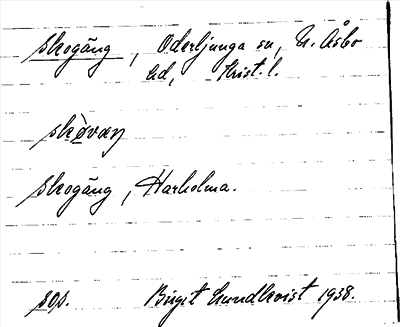 skogäng, Oderljunga sn, N. Åsbo
hd, Krist. l.
skòvaŋ
skogäng, Harholma.
sop. Birgit Lundkvist 1938.